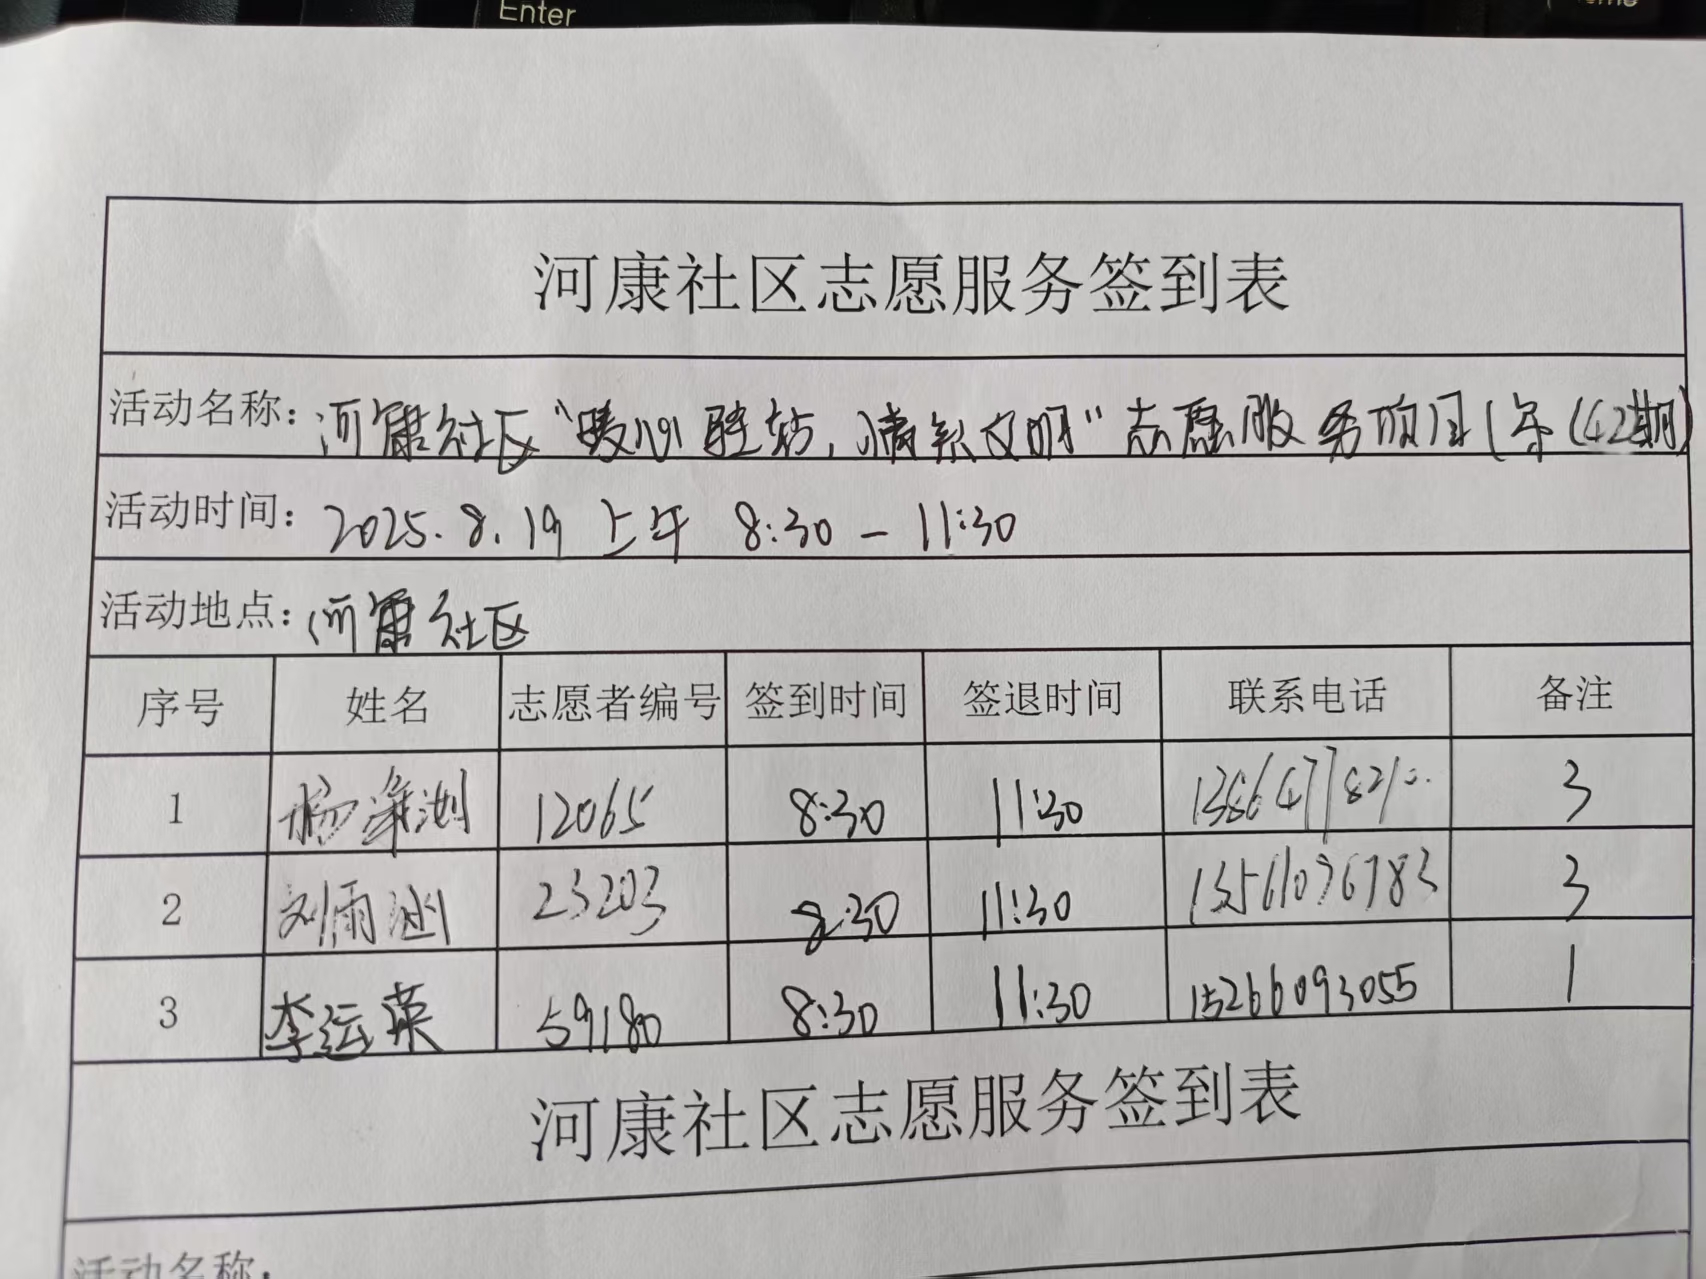 Enter
河康社区志愿服务签到表
活动名称: 河康社区"暖心驿站,情系文明"志愿服务项目(第(42期)
活动时间: 2025.8.19 上午 8:30-11:30
活动地点: 河康社区
序号 姓名 志愿者编号 签到时间 签退时间 联系电话 备注
1 杨 12065 8:30 11:30 3
2 刘雨 23203 8:30 11:30 13561096783 3
3 李运英 59180 8:30 11:30 15266093055 1
河康社区志愿服务签到表
活动名称: